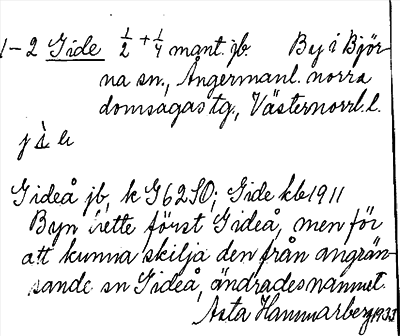 1-2 Gide 1/2 + 1/4 mant. jb. By i Björ-
na sn., Ångermanl. norra
domsagas tg., Västernorrl. l.
Gideå jb, k G62SO; Gide kb 1911
Byn hette först Gideå, men för
att kunna skilja den från angrän-
sande sn Gideå, ändrades namnet.
Asta Hammarberg 1933